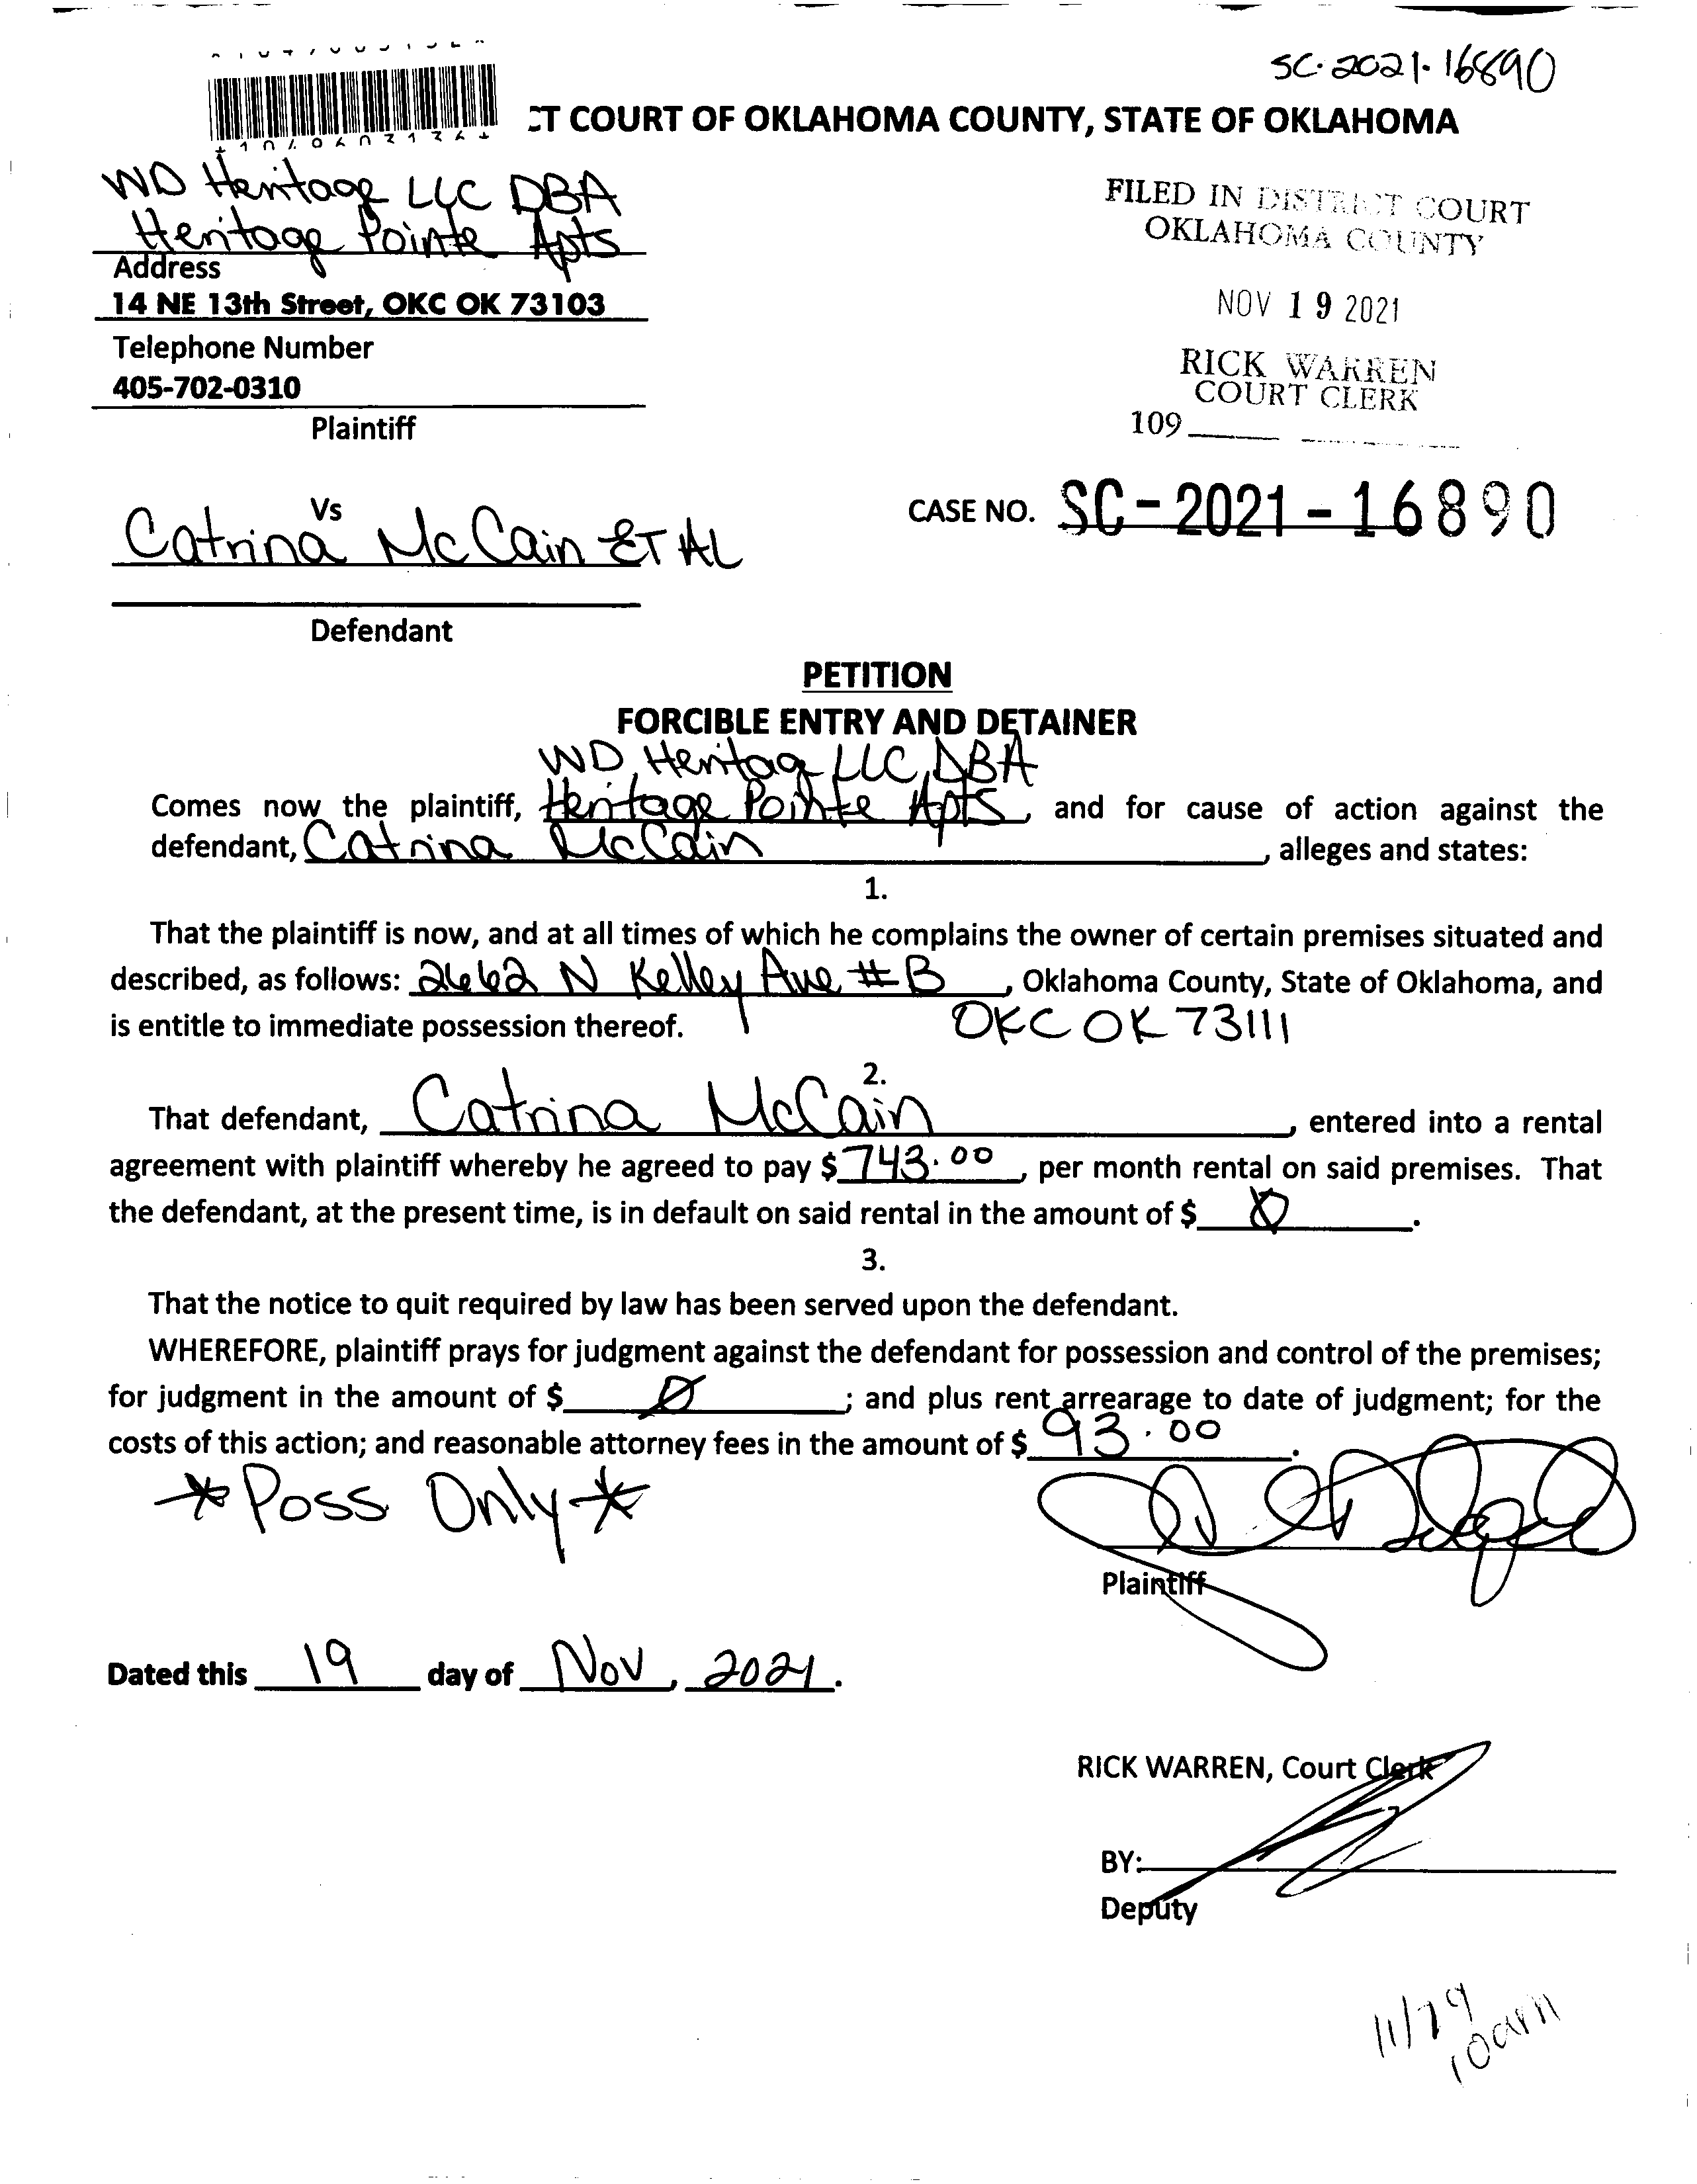 SC-2021-16890
CT COURT OF OKLAHOMA COUNTY, STATE OF OKLAHOMA
WD Heritage LLC DBA
Heritage Pointe Apts
Address
14 NE 13th Street, OKC OK 73103
Telephone Number
405-702-0310
Plaintiff
FILED IN DISTRICT COURT
OKLAHOMA COUNTY
NOV 19 2021
RICK WARREN
COURT CLERK
109
Vs
Catrina McCain ET AL
Defendant
CASE NO. SC-2021-16890
PETITION
FORCIBLE ENTRY AND DETAINER
WD Heritag LLC DBA
Comes now the plaintiff, Heritage Pointe Apts, and for cause of action against the
defendant, Catrina McCain, alleges and states:
1.
That the plaintiff is now, and at all times of which he complains the owner of certain premises situated and
described, as follows: 2662 N Kelley Ave #B, Oklahoma County, State of Oklahoma, and
is entitle to immediate possession thereof. OKC OK 73111
2.
That defendant, Catrina McCain, entered into a rental
agreement with plaintiff whereby he agreed to pay $743.00, per month rental on said premises. That
the defendant, at the present time, is in default on said rental in the amount of $ 0.
3.
That the notice to quit required by law has been served upon the defendant.
WHEREFORE, plaintiff prays for judgment against the defendant for possession and control of the premises;
for judgment in the amount of $ 0; and plus rent arrearage to date of judgment; for the
costs of this action; and reasonable attorney fees in the amount of $ 93.00.
*Poss Only*
Plaintiff
Dated this 19 day of Nov, 2021.
RICK WARREN, Court Clerk
BY:
Deputy
10am